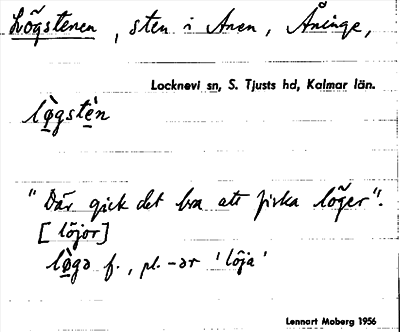 Lõgstenen, sten i Anen, Åninge,
Locknevi sn, S. Tjusts hd, Kalmar län.
lø̀gstèn
"Där gick det bra att fiska lõger".
[löjor]
lø̀gə f., pl. -ər 'löja'
Lennart Moberg 1956